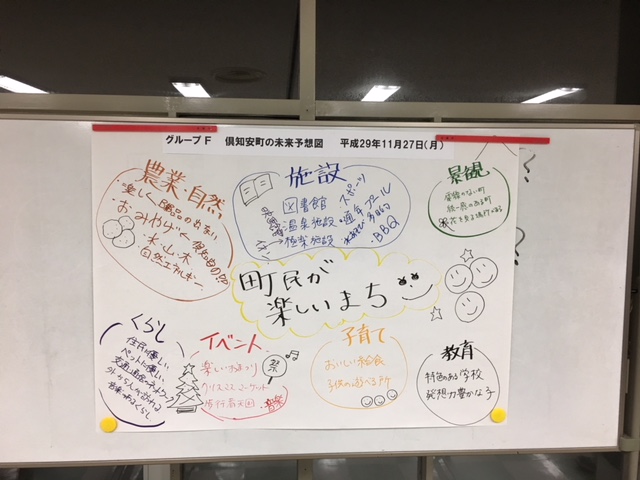 グループF 倶知安町の未来予想図 平成29年11月27日(月)
農業・自然
おみやげ
水・山・木
自然エネルギー
施設
図書館
温泉施設
極楽施設
スポーツ
通年プール
・BBQ
景観
電線のない町
統一感のある町
町民が
楽しいまち
くらし
住民に優しい
ペットに優しい
イベント
楽しいおまつり
クリスマスマーケット
歩行者天国
・音楽
祭
子育て
おいしい給食
子供の遊べる所
教育
特色のある学校
発想力豊かな子